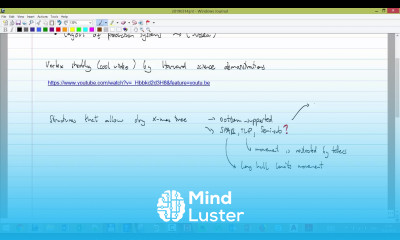 Layout of production systems
Vortex shedding (cool video) by Harvard science demonstrations
https://www.youtube.com/watch?v=_Hbbkd2d3H8&feature=youtu.be
Structures that allow dry x-mas tree → bottom supported
→ SPAR, TLP, Semisub?
movement is restricted by tethers
Long hull, limits movement
Mind
Luster